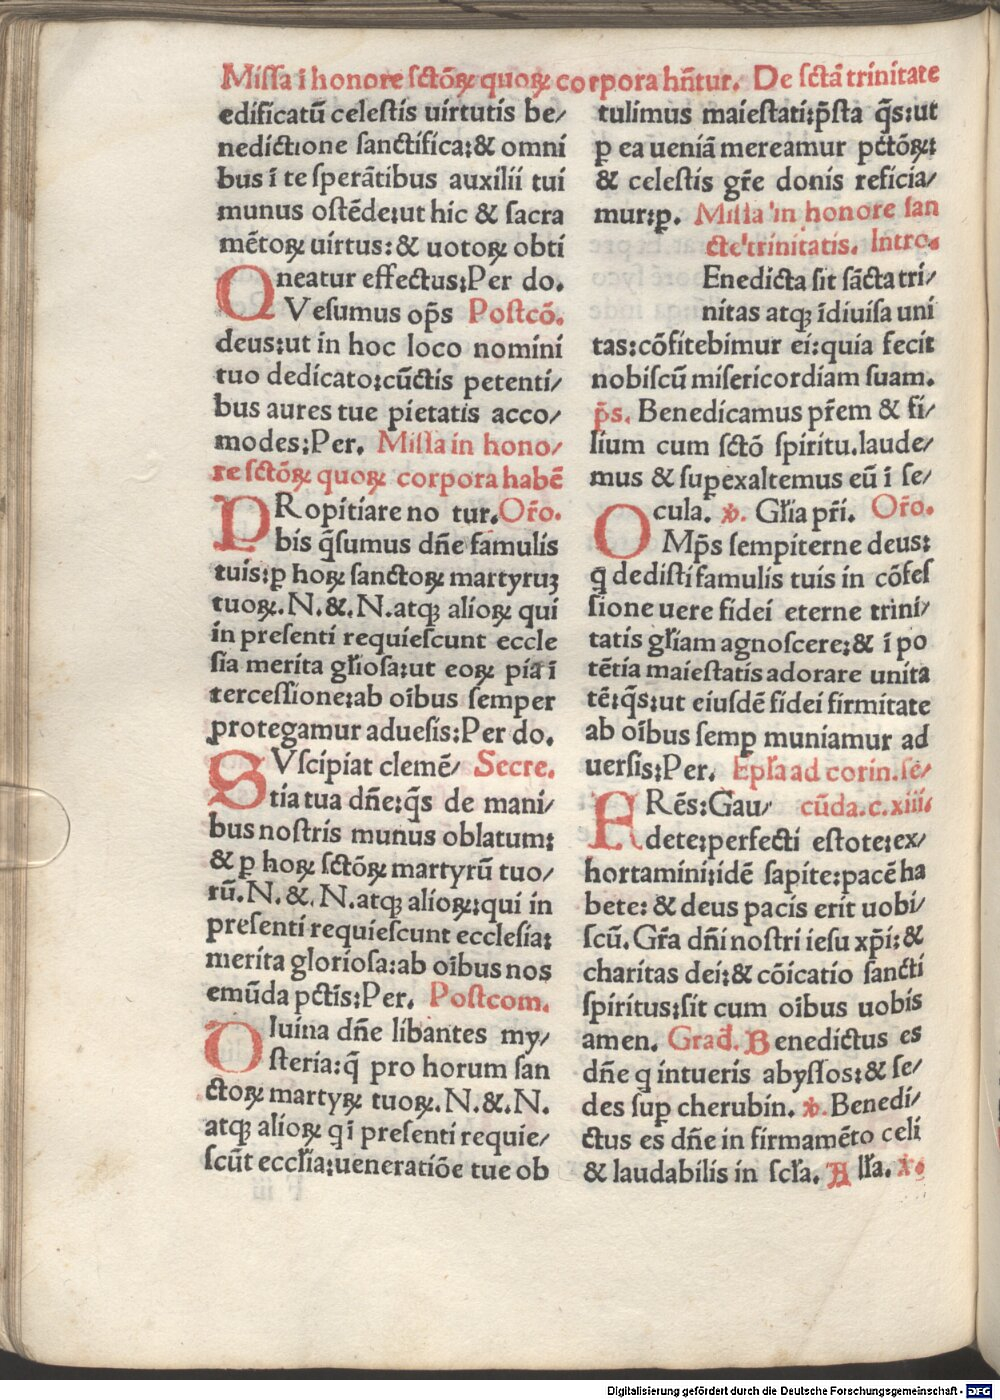 Missa ī honore sctōꝝ quoꝝ corpora hn̄tur. De sctā trinitate
edificatū celestis uirtutis be/
nedictione sanctifica:& omni
bus ī te sperātibus auxilii tui
munus ostēde:ut hic & sacra
mētoꝝ uirtus:& uotoꝝ obti
neatur effectus:Per do.
QVesumus op̄s Postcō.
deus:ut in hoc loco nomini
tuo dedicato:cūctis petenti/
bus aures tue pietatis acco/
modes:Per. Missa in hono/
re sctōꝝ quoꝝ corpora habē
PRopitiare no tur. Or̄o.
bis q̄sumus dn̄e famulis
tuis:ꝑ hoꝝ sanctoꝝ martyruꝫ
tuoꝝ.N.&.N.atqꝫ alioꝝ qui
in presenti requiescunt eccle
sia merita gl̄iosa:ut eoꝝ pia ī
tercessione:ab oībus semper
protegamur aduesis:Per do.
SVscipiat clemē/ Secre.
tia tua dn̄e:q̄s de mani/
bus nostris munus oblatum:
& ꝑ hoꝝ sctōꝝ martyrū tuo/
rū.N.&.N.atqꝫ alioꝝ:qui in
presenti requiescunt ecclesia:
merita gloriosa:ab oībus nos
emūda pctīs:Per. Postcom.
DIuina dn̄e libantes my/
steria:q̄ pro horum san
ctoꝝ martyꝝ tuoꝝ.N.&.N.
atqꝫ alioꝝ qī presenti requie/
scūt eccl̄ia:ueneratiōe tue ob
tulimus maiestati:p̄sta q̄s:ut
ꝑ ea ueniā mereamur pctōꝝ:
& celestis gr̄e donis reficia/
mur:ꝑ. Missa in honore san
cte trinitatis. Intro.
Enedicta sit sācta tri/
nitas atqꝫ īdiuisa uni
tas:cōfitebimur ei:quia fecit
nobiscū misericordiam suam.
p̄s. Benedicamus pr̄em & fi/
lium cum sctō spiritu.laude/
mus & suꝑexaltemus eū ī se/
cula. ꝟ. Gl̄ia pr̄i. Or̄o.
OMp̄s sempiterne deus:
q̄ dedisti famulis tuis in cōfes
sione uere fidei eterne trini/
tatis gl̄iam agnoscere:& ī po
tētia maiestatis adorare unita
tē:q̄s:ut eiusdē fidei firmitate
ab oībus semꝑ muniamur ad
uersis:Per. Epl̄a ad corin.se/
FRēs:Gau/ cūda.c.xiii.
dete:perfecti estote:ex/
hortamini:idē sapite:pacē ha
bete: & deus pacis erit uobi/
scū.Gr̄a dn̄i nostri iesu xp̄i:&
charitas dei:& cōicatio sancti
spiritus:sit cum oībus uobis
amen. Grad̄. Benedictus es
dn̄e q intueris abyssos:& se/
des suꝑ cherubin. ꝟ. Benedi/
ctus es dn̄e in firmamēto celi
& laudabilis in scl̄a. All̄a. ꝟ.
Digitalisierung gefördert durch die Deutsche Forschungsgemeinschaft - DFG